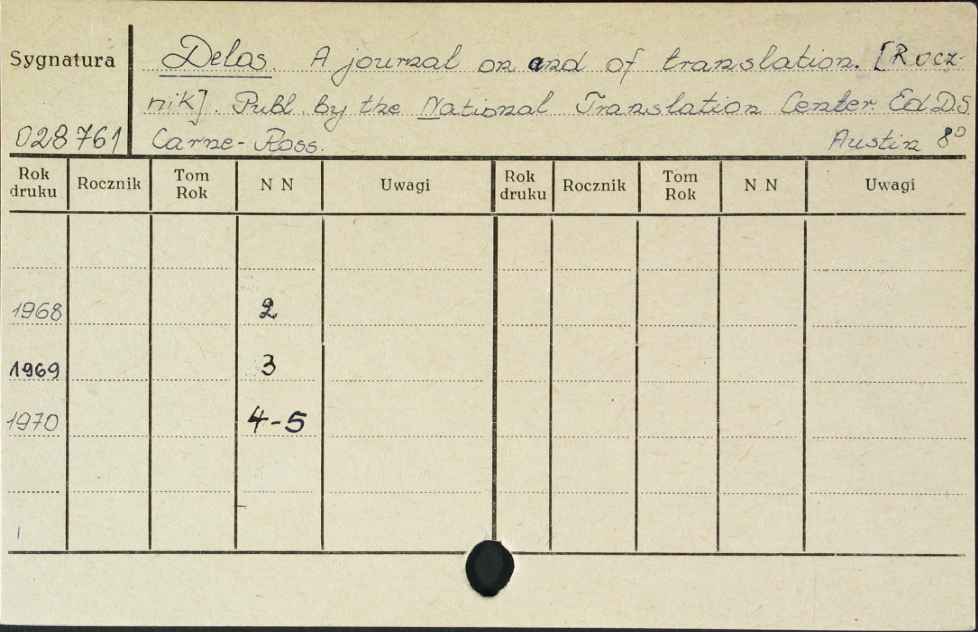 Sygnatura
028761
Delos. A journal on and of translation. [Rocz-
nik]. Publ. by the National Translation Center. Ed D.S.
Carne-Ross. Austin 8⁰
Rok druku Rocznik Tom Rok N N Uwagi Rok druku Rocznik Tom Rok N N Uwagi
1968 2
1969 3
1970 4-5